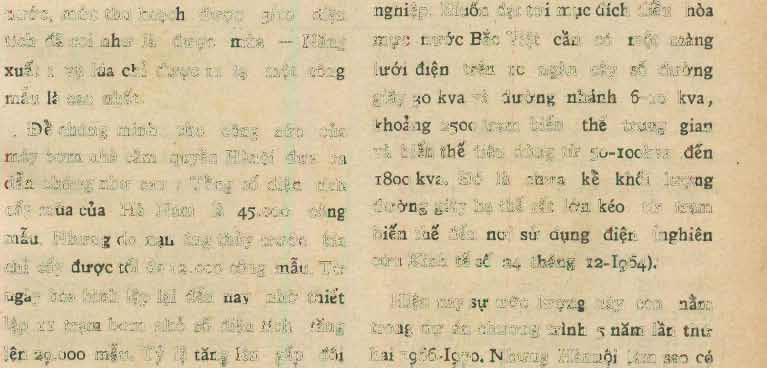 nước, mức thu hoạch được 3/10 diện
tích đã coi như là được mùa — Năng
xuất 1 vụ lúa chỉ được 11 tạ một công
mẫu là cao nhất.
Để chứng minh cho công sức của
máy bơm nhà cầm quyền Hànội đưa ra
dẫn chứng như sau : Tổng số diện tích
cấy mùa của Hà Nam là 45.000 công
mẫu. Nhưng do nạn úng thủy trước kia
chỉ cấy được tối đa 12.000 công mẫu. Từ
ngày hòa bình lập lại đến nay nhờ thiết
lập 11 trạm bơm nhỏ số diện tích tăng
lên 29.000 mẫu. Tỷ lệ tăng lên gấp đôi
nghiệp. Muốn đạt tới mục đích điều hòa
mực nước Bắc Việt cần có một màng
lưới điện trên 10 ngàn cây số đường
giây 30 kva và đường nhánh 6-10 kva,
khoảng 2500 trạm biến thế trung gian
và biến thế tiêu dùng từ 50-100kva đến
1800 kva. Đó là chưa kể khối lượng
đường giây hạ thế rất lớn kéo từ trạm
biến thế đến nơi sử dụng điện (nghiên
cứu Kinh tế số 24 tháng 12-1964).
Hiện nay sự ước lượng này còn nằm
trong dự án chương trình 5 năm lần thứ
hai 1966-1970. Nhưng Hànội làm sao có